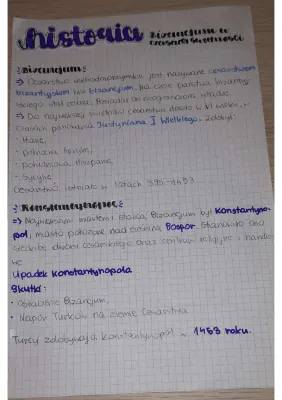 historia Bizancjum w
czasach świetności
Bizancjum:
=> Cesarstwo wschodniorzymskie jest nazywane cesarstwem
bizantyjskim lub bizancjum. Na czele państwa bizanty-
stał cesarz. Posiadał on nieograniczoną władzę.
=> Do największej świetności cesarstwo doszło w VI wieku, w
czasach panowania Justyniana I Wielkiego. Zdobył:
• Italię,
• północną Afrykę,
• południową Hiszpanię,
• Sycylię.
Cesarstwo istniało w latach 395-1453
Konstantynopol:
=> Największym miastem i stolicą Bizancjum był Konstantyno-
pol, miasto położone nad cieśniną Bosfor. Stanowiło ono
siedzibę dworu cesarskiego oraz centrum religijne i handlo-
we
Upadek Konstantynopola
Skutki:
• Osłabienie Bizancjum,
• Napór Turków na ziemie Cesarstwa
Turcy zdobywają Konstantynopol w 1453 roku.